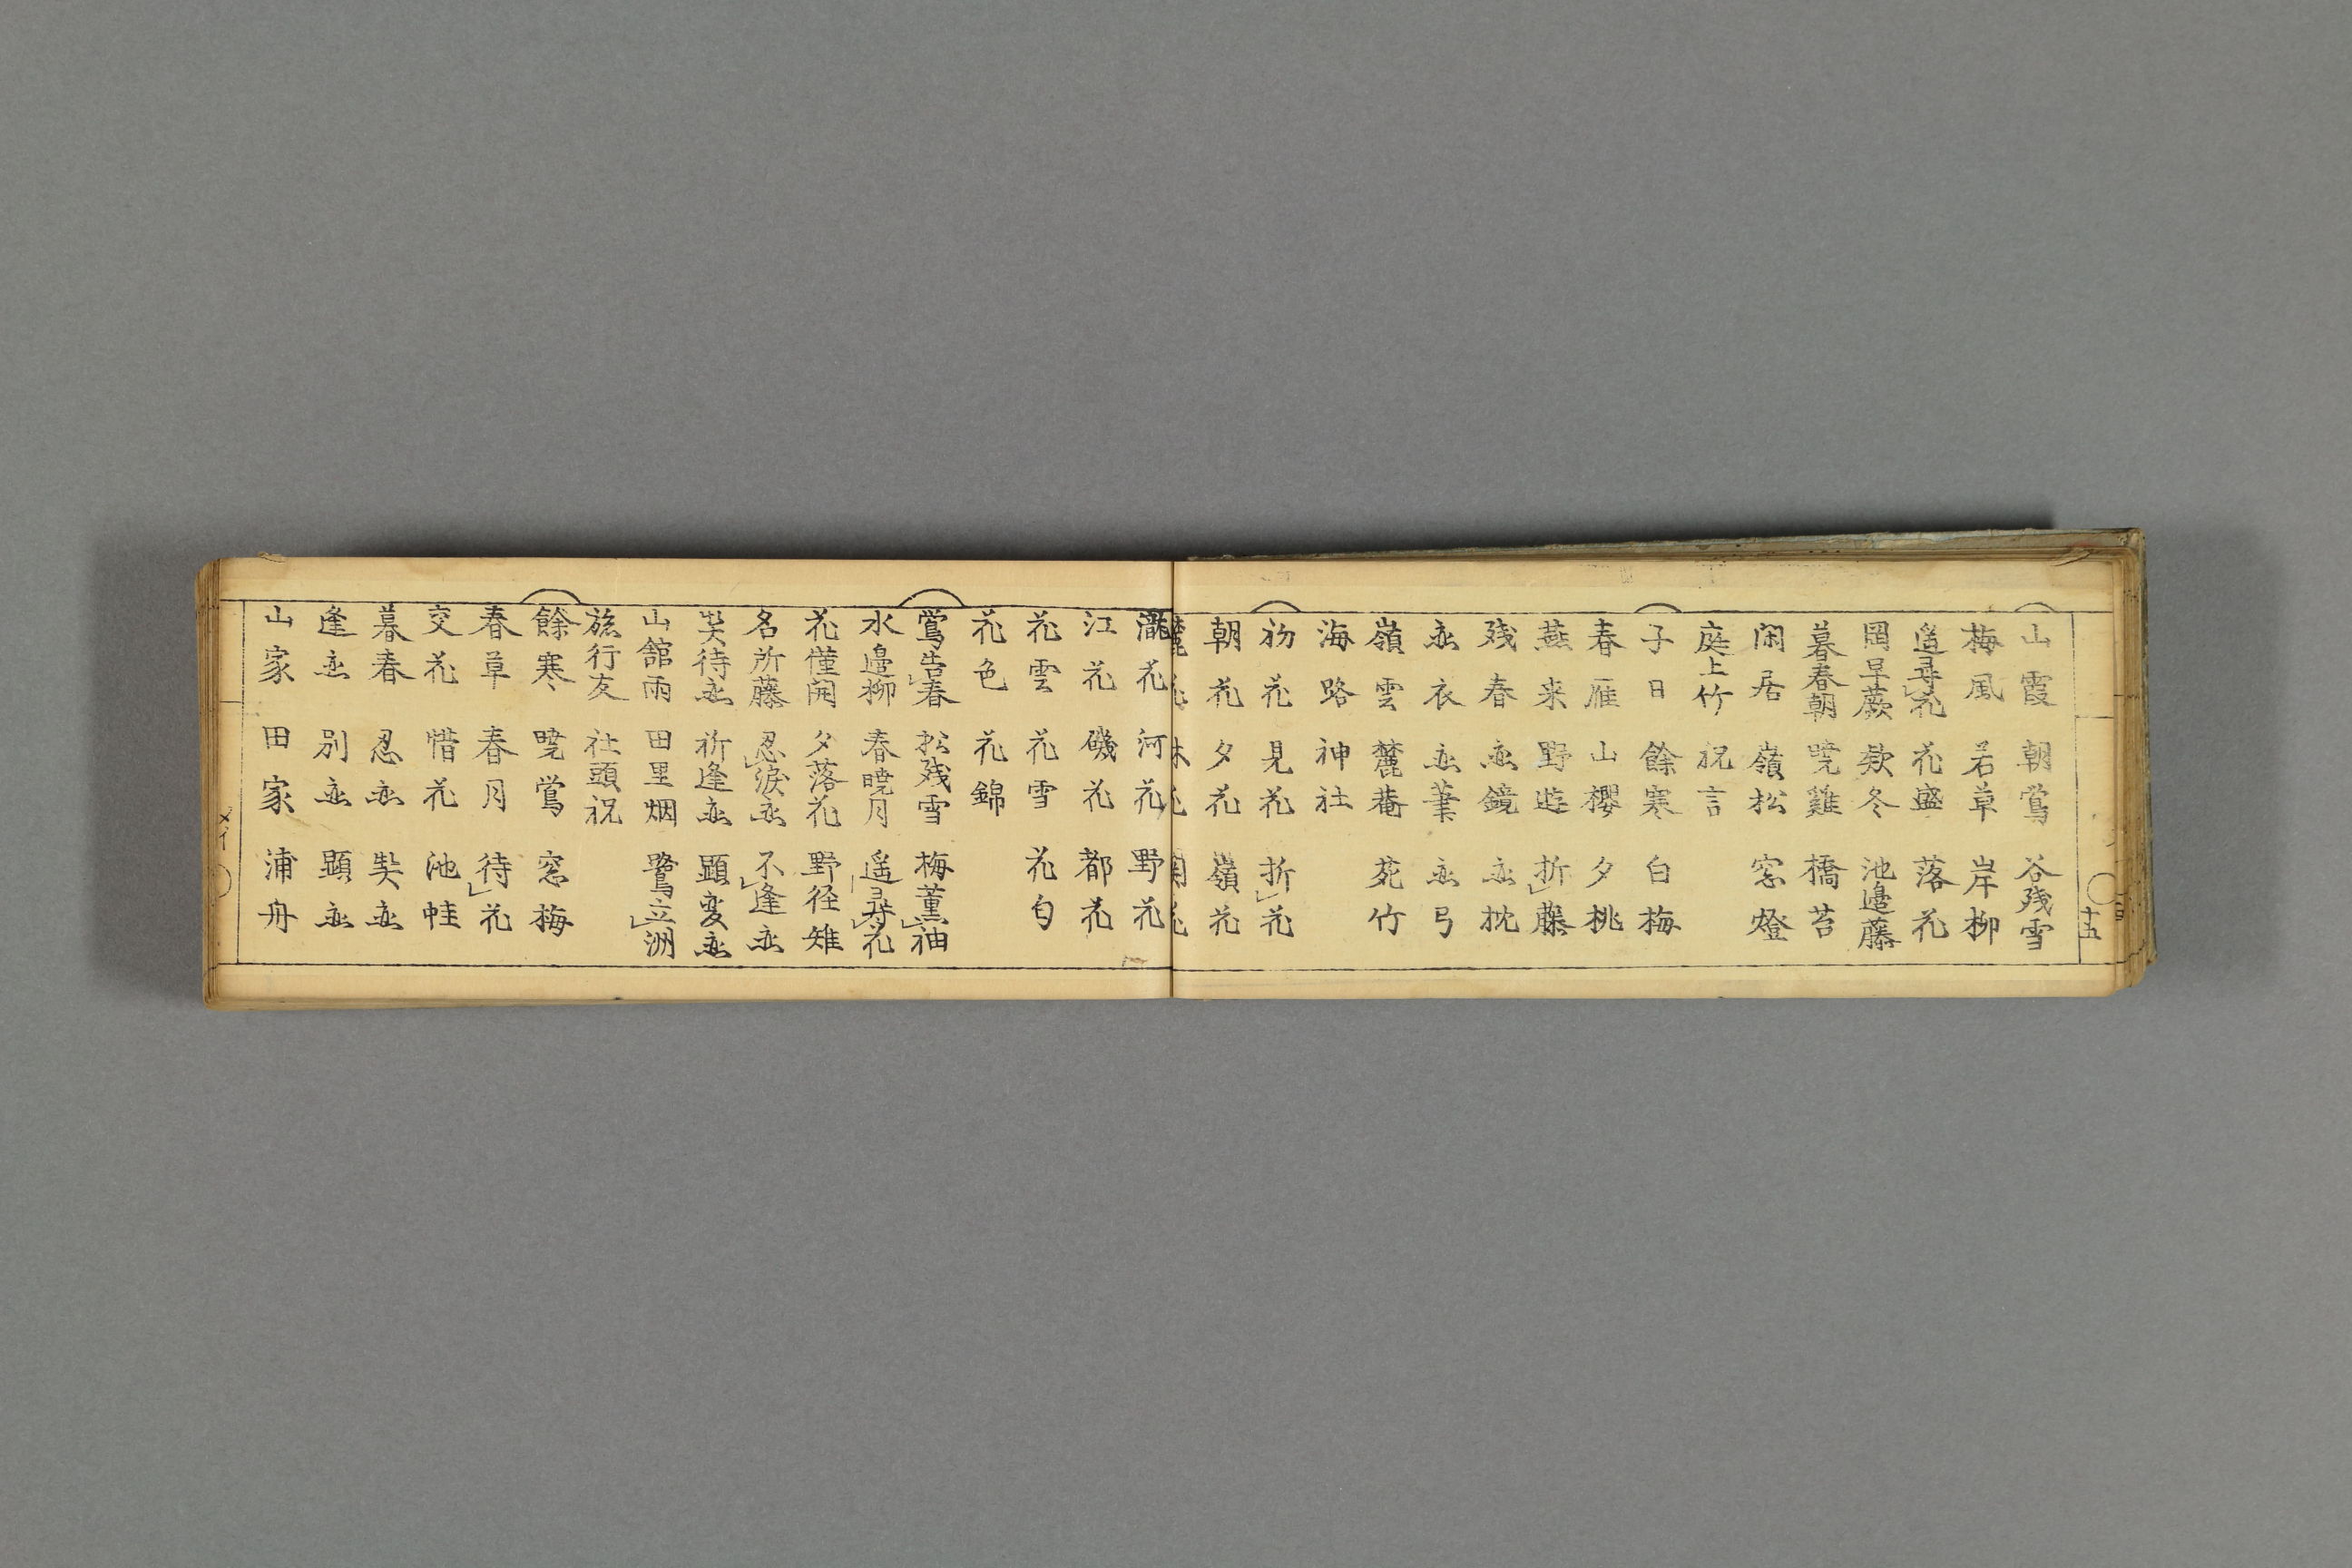 十五
山霞 朝鶯 谷残雪
梅風 若草 岸柳
遥尋花 花盛 落花
岡早蕨 欵冬 池邉藤
暮春朝 暁雞 橋苔
閑居 嶺松 窓燈
庭上竹 祝言
子日 餘寒 白梅
春雁 山櫻 夕桃
燕来 野遊 折藤
残春 恋鏡 恋枕
恋衣 恋筆 恋弓
嶺雲 麓菴 苑竹
海路 神社
初花 見花 折花
朝花 夕花 嶺花
麓花 林花 関花
瀧花 河花 野花
江花 磯花 都花
花雲 花雪 花匂
花色 花錦
鶯告春 松残雪 梅薫袖
水邉柳 春暁月 遥尋花
花僅開 夕落花 野径雉
名所藤 忍涙恋 不逢恋
契待恋 祈逢恋 顕変恋
山舘雨 田里烟 鷺立洲
旅行友 社頭祝
餘寒 暁鶯 窓梅
春草 春月 待花
交花 惜花 池蛙
暮春 忍恋 契恋
逢恋 別恋 顕恋
山家 田家 浦舟